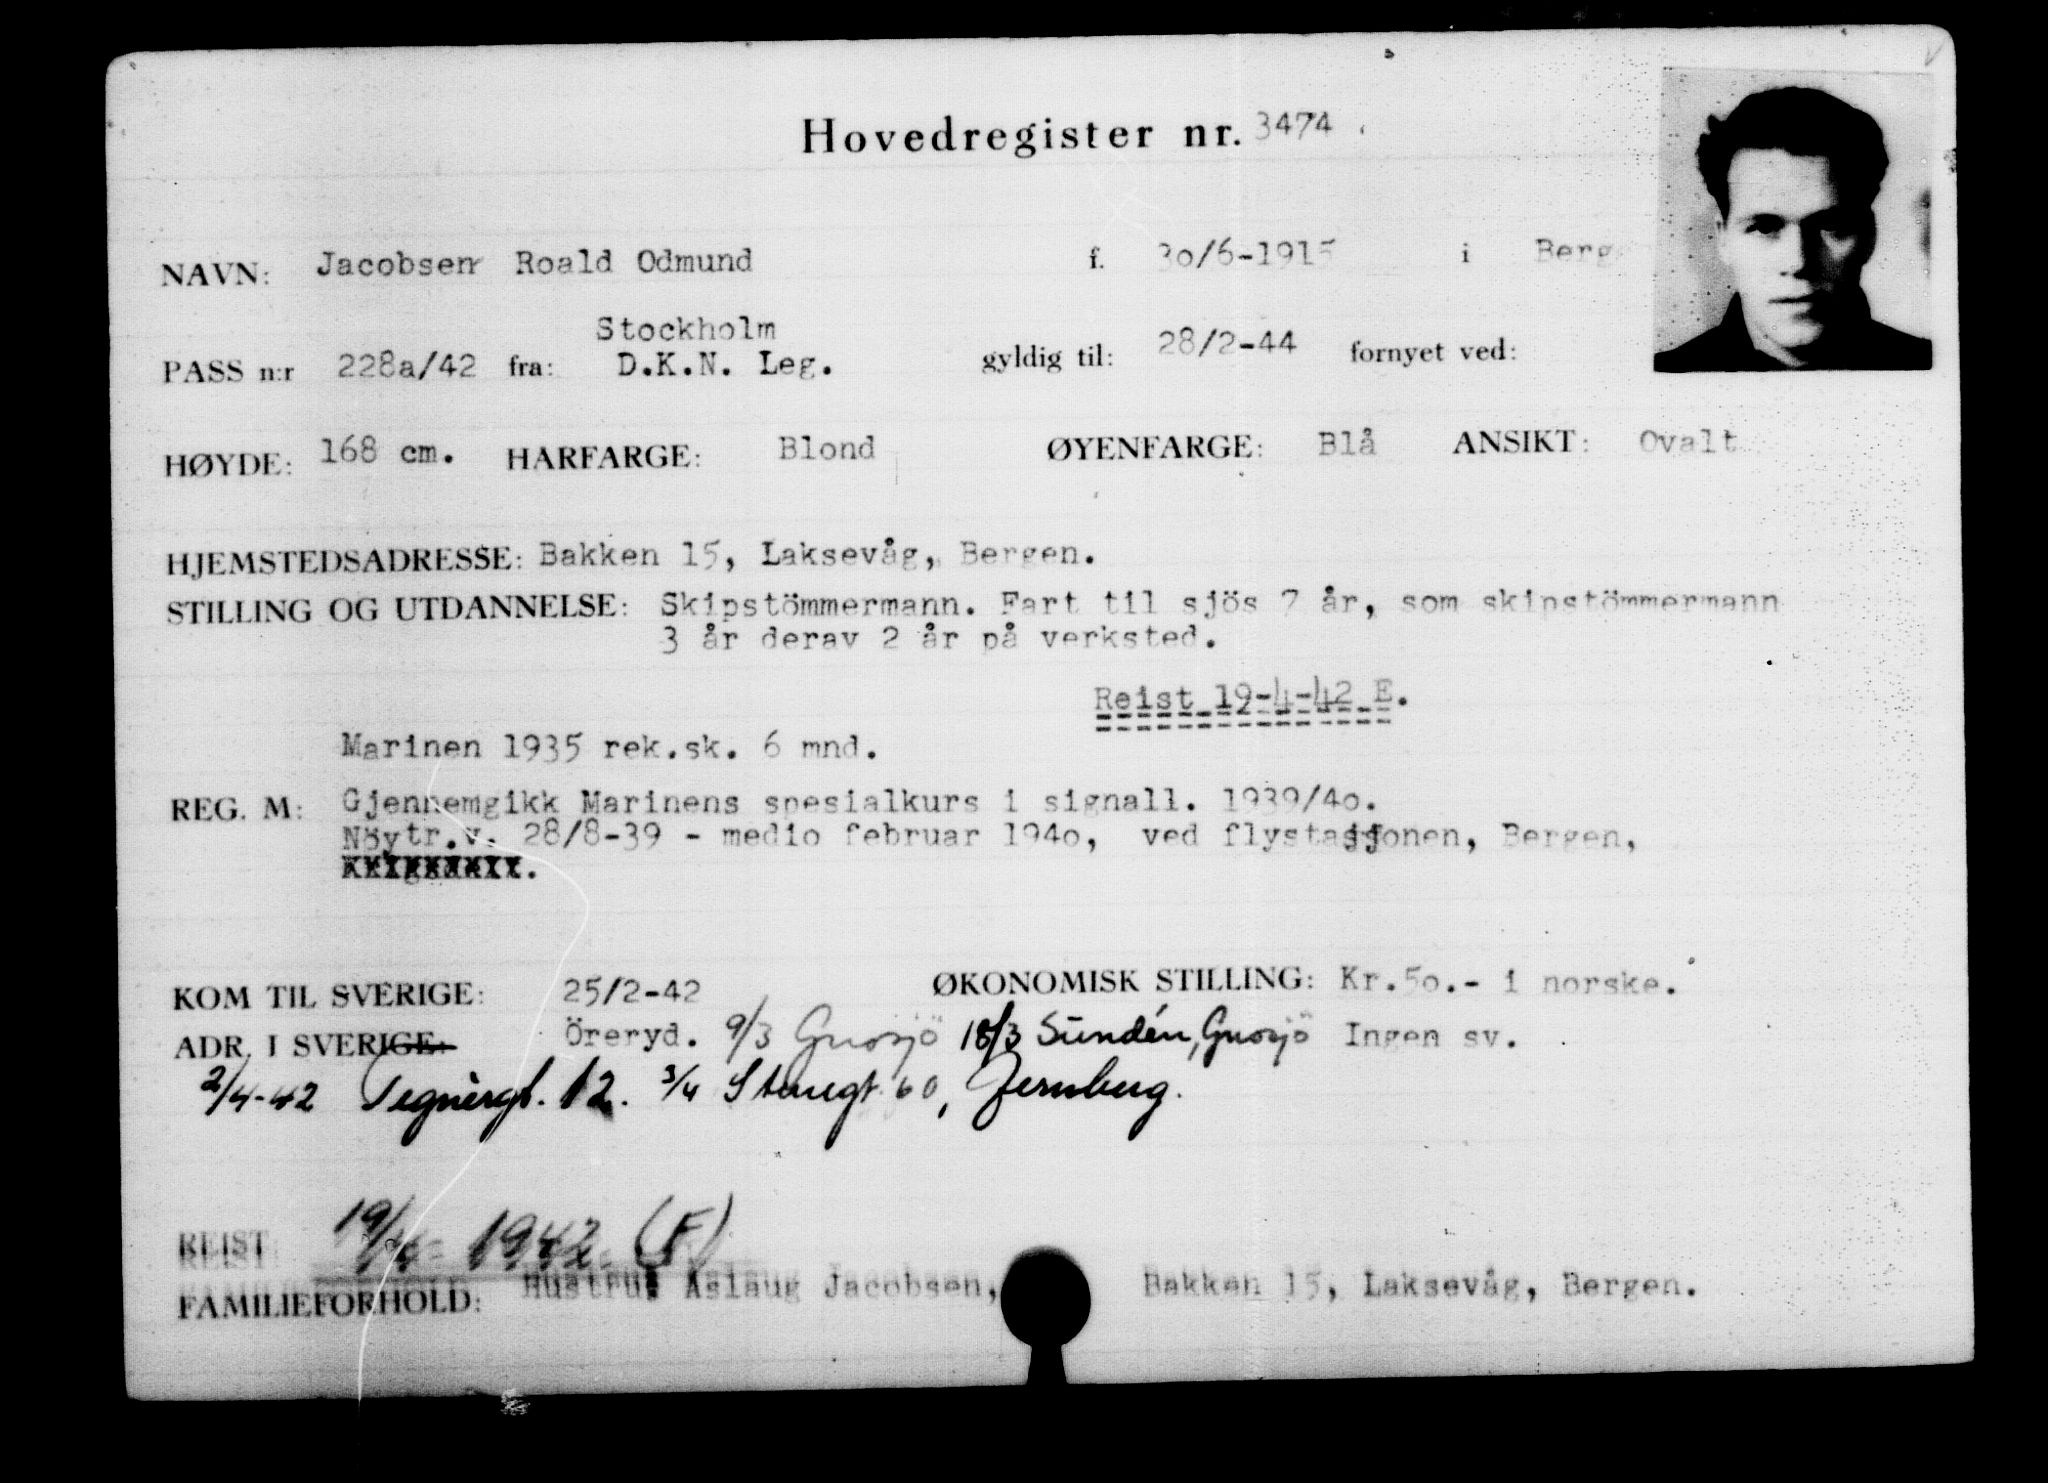 Hovedregister nr. 3474
NAVN: Jacobsen Roald Odmund f. 30/6-1915 i Berg
Stockholm
PASS n:r 228a/42 fra: D.K.N. Leg. gyldig til: 28/2-44 fornyet ved:
HØYDE: 168 cm. HARFARGE: Blond ØYENFARGE: Blå ANSIKT: Ovalt
HJEMSTEDSADRESSE: Bakken 15, Laksevåg, Bergen.
STILLING OG UTDANNELSE: Skipstömmermann. Fart til sjös 7 år, som skipstömmermann
3 år derav 2 år på verksted.
Reist 19-4-42 E.
Marinen 1935 rek.sk. 6 mnd.
REG. M: Gjennemgikk Marinens spesialkurs i signall. 1939/4o.
Nöytr.v. 28/8-39 - medio februar 194o, ved flystasjonen, Bergen,
KOM TIL SVERIGE: 25/2-42 ØKONOMISK STILLING: Kr.5o.- i norske.
ADR. I SVERIGE: Öreryd. 9/3 Gnosjö 18/3 Sundén, Gnosjö Ingen sv.
2/4-42 Tegnérgt. 12. 3/4 60, Jernberg.
REIST 19/4- 1942. (F)
FAMILIEFORHOLD: Hustru: Aslaug Jacobsen, Bakken 15, Laksevåg, Bergen.